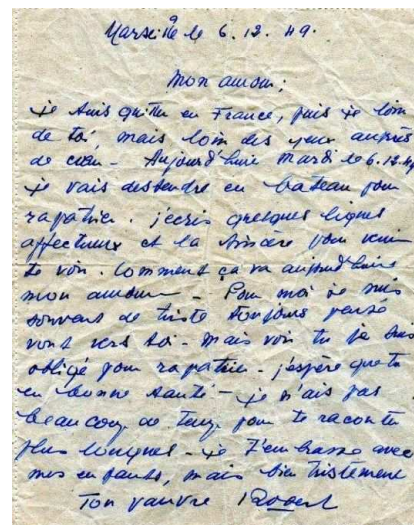 Marseille le 6.12.49.
mon amour;
je suis quitter en France, puis je loin
de toi, mais loin des yeux auprès
de cœur - Aujourd'huie mardi le 6.12.49
je vais destendre en bateau pour
rapatrier. j'ecris quelques lignes
affectueux et la sincère pour venir
te voir. Comment ça va aujourd'huie
mon amour - Pour moi je suis
souvent de triste toujours pensé
vont vers toi - mais voir tu je suis
obligé pour rapatrier - j'espère que tu
en bonne santé - je n'ais pas
beaucoup de temp pour te raconte
plus longues - je t'embrasse avec
mes enfants, mais bien tristement
Ton pauvre Robert